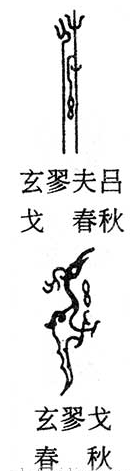 玄翏夫吕
戈 春秋
玄翏戈
春 秋